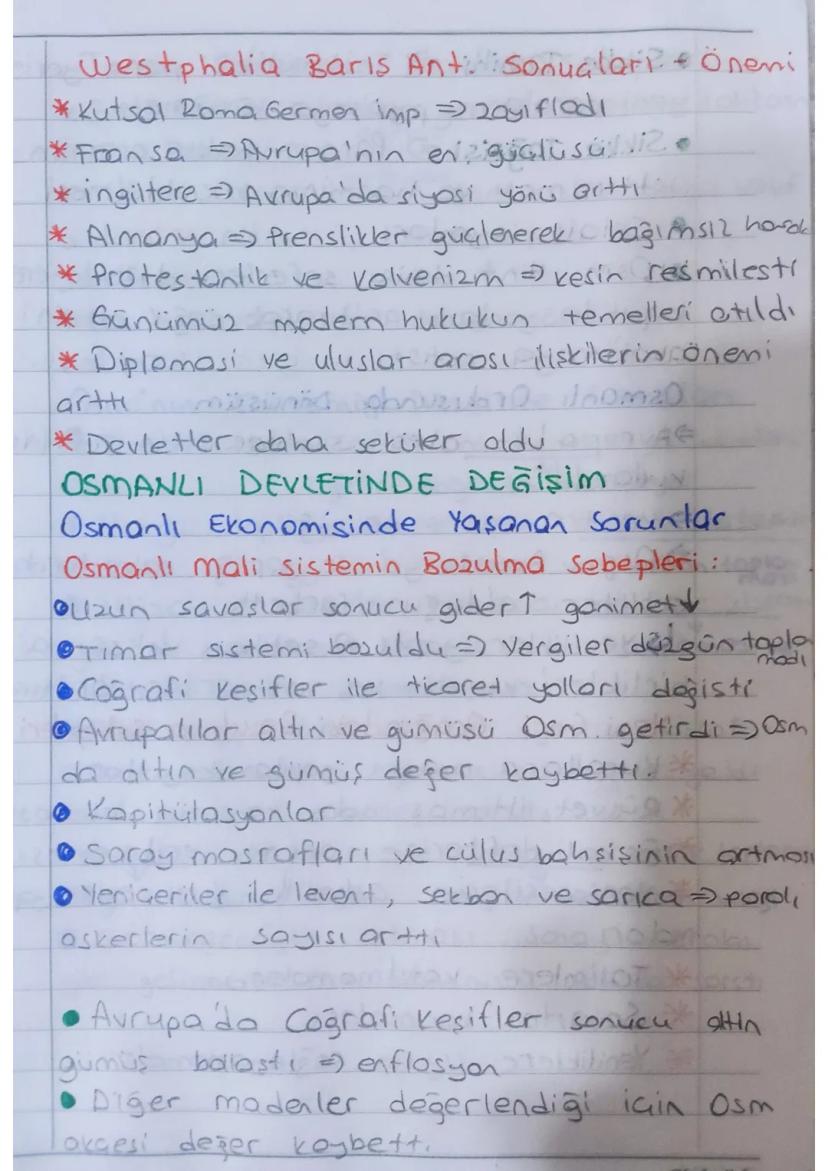 Westphalia Barıs Ant. Sonuçları + Önemi
* Kutsal Roma Germen imp ⇒ zayıfladı
* Fransa ⇒ Avrupa'nın en güçlüsü
* ingiltere ⇒ Avrupa'da siyasi yönü arttı
* Almanya ⇒ Prenslikler güçlenerek bağımsız
* Protestanlık ve Kalvenizm ⇒ kesin resmilesti
* Günümüz modern hukukun temelleri atıldı
* Diplomasi ve uluslar arası iliskilerin önemi
arttı
* Devletler daha seküler oldu
OSMANLI DEVLETİNDE DEĞİŞİM
Osmanlı Ekonomisinde Yasanan Sorunlar
Osmanlı Mali sistemin Bozulma Sebepleri :
• Uzun savaslar sonucu gider ↑ ganimet ↓
• Tımar sistemi bozuldu ⇒ vergiler düzgün topla
madı
• Coğrafi kesifler ile ticaret yolları değisti
• Avrupalılar altın ve gümüsü Osm. getirdi ⇒ Osm
da altın ve gümüş değer kaybetti.
• Kapitülasyonlar
• Saray masrafları ve cülus bahsisinin artması
• Yeniçeriler ile levent, sekban ve sarıca ⇒ paralı
askerlerin sayısı arttı
• Avrupa'da Coğrafi kesifler sonucu altın
gümüs bollastı ⇒ enflasyon
• Diğer madenler değerlendiği için Osm
akçesi değer kaybetti.